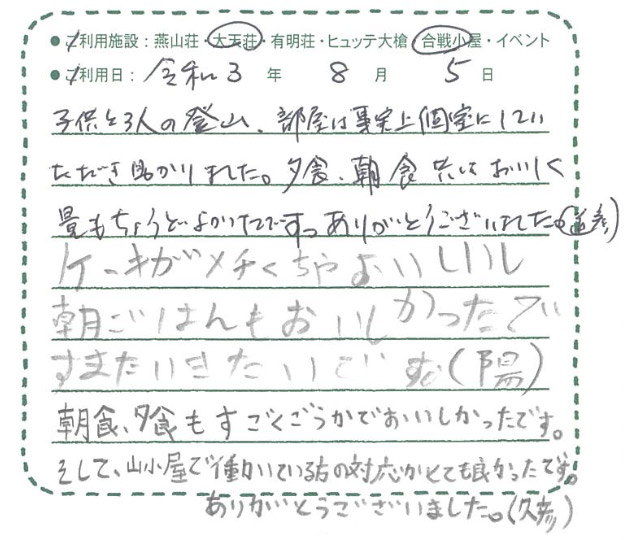 ●ご利用施設：燕山荘・大天荘・有明荘・ヒュッテ大槍・合戦小屋・イベント
●ご利用日：令和3年8月5日
子供と3人の登山、部屋は事実上個室にしてい
ただき助かりました。夕食、朝食共においしく
量もちょうどよかったですっありがとうございました。
ケーキがメチくちゃよいしいし
朝ごはんもおいしかったで
すまたいきたいです(陽)
朝食、夕食もすごくごうかでおいしかったです。
そして、山小屋で働いている方の対応がとても良かったです。
ありがとうございました。(久彦)